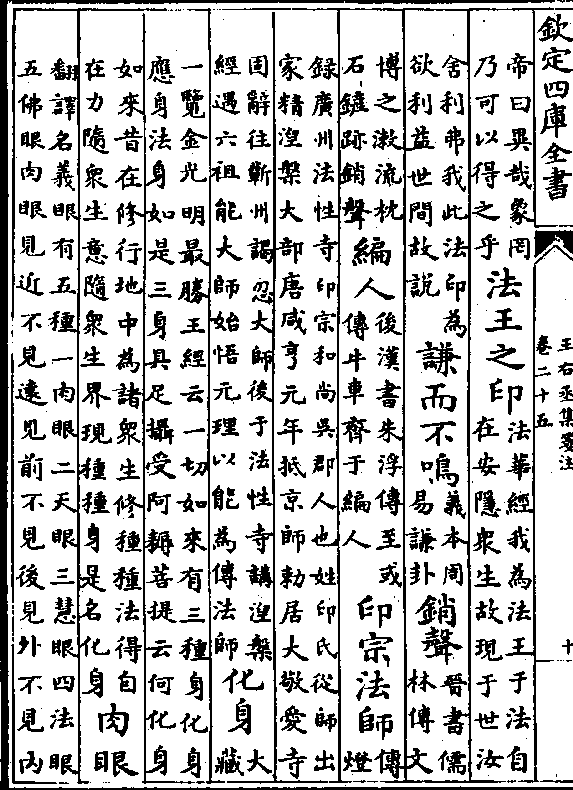 欽定四庫全書
王右丞集箋注
卷二十五
十
帝曰異哉象罔
乃可以得之乎
法王之印
法華經我為法王于法自
在安隱衆生故現于世汝
舍利弗我此法印為
欲利益世間故說
謙而不鳴
義本周
易謙卦
銷聲
晉書儒
林傳文
博之漱流枕
石鏟跡銷聲
編人
後漢書朱浮傳至或
傳牛車齊于編人
印宗法師
傳
燈
錄廣州法性寺印宗和尚吳郡人也姓印氏從師出
家精湼槃大部唐咸亨元年抵京師勅居大敬愛寺
固辭往蘄州謁忍大師後于法性寺講湼槃
經遇六祖能大師始悟元理以能為傳法師
化身
大
藏
一覽金光明最勝王經云一切如來有三種身化身
應身法身如是三身具足攝受阿耨菩提云何化身
如來昔在修行地中為諸衆生修種種法得自
在力隨衆生意隨衆生界現種種身是名化身
肉眼
翻譯名義眼有五種一肉眼二天眼三慧眼四法眼
五佛眼肉眼見近不見遠見前不見後見外不見内